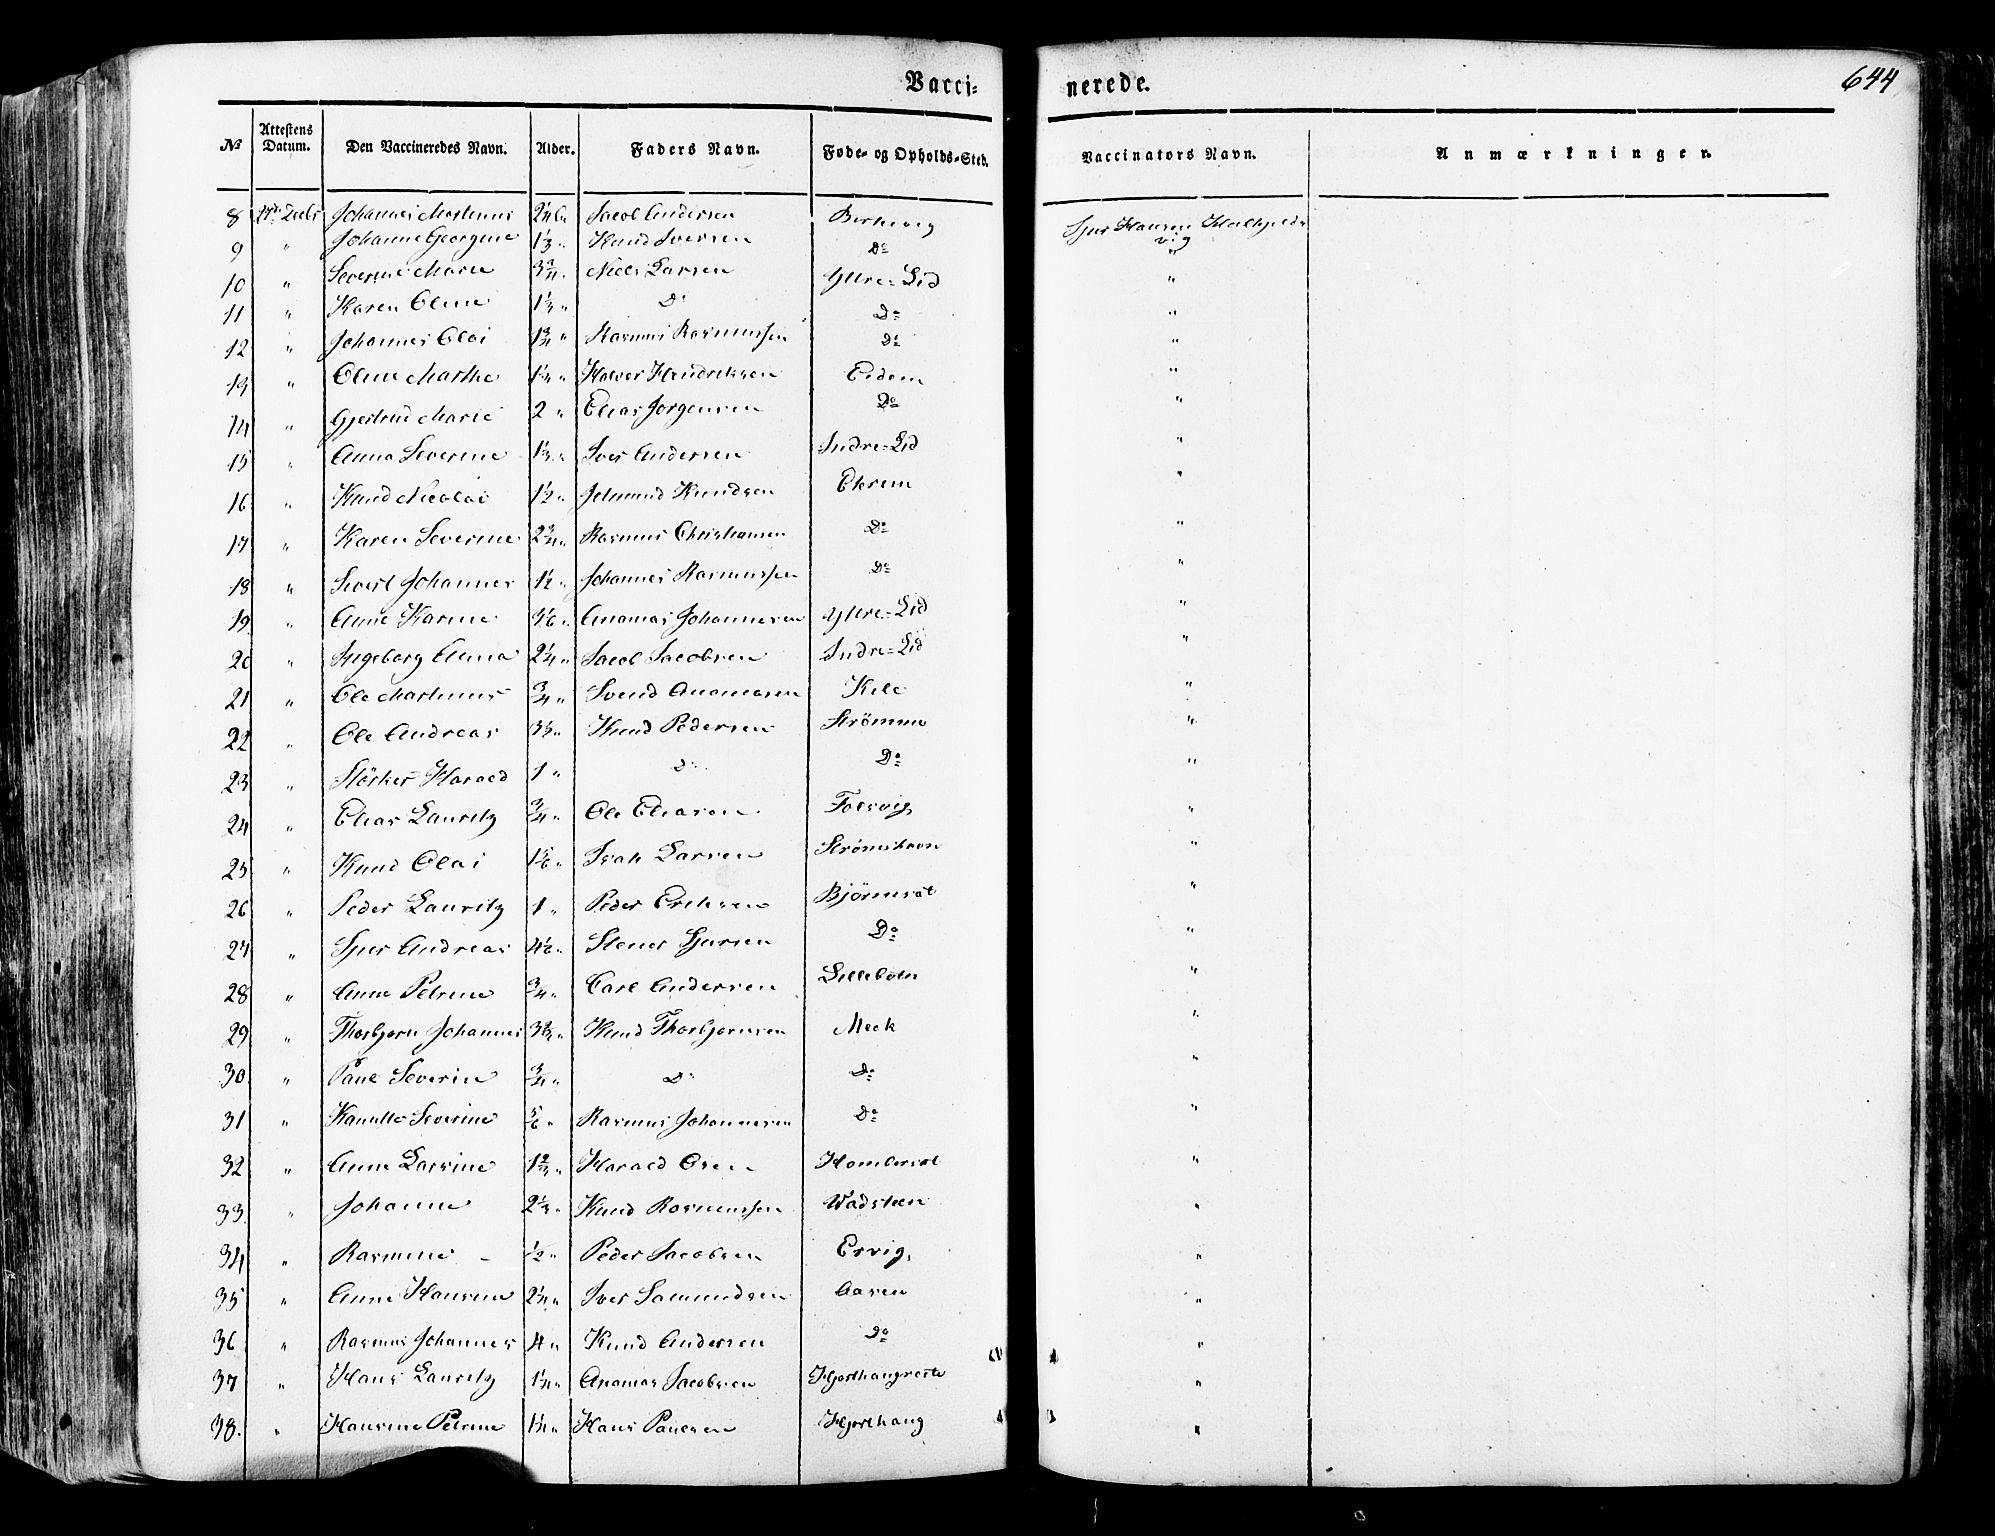 Vacci= nerede. 644
No Attestens Datum. Den Vaccineredes Navn. Alder. Faders Navn. Føde- og Opholds-Sted. Vaccinators Navn. Anmærkninger.
8 Johannes Martinus Jacob Andersen Berkevig Sjur Hansen
9 " Johanne Georgine 1⅓ " Knud Iversen Do
10 " Severine Marie 3¾ " Niels Larsen Yttre=Lid "
11 " Karen Oline 1½ " Do Do "
12 " Johannes Olai 1¾ " Rasmus Rasmussen Do "
13 " Oline Marthe Halvor Hendriksen Eidem "
14 " Gjertrud Marie 2 " Elias Jørgensen Do "
15 " Anna Severine 1⅓ " Iver Andersen Indre=Lid "
16 " Knud Nicolai 1½ " Knudsen Ekrem "
17 " Karen Severine 2¾ " Rasmus Christiansen Do "
18 " Sivert Johannes 1½ " Johannes Rasmussen Do "
19 " Anne Karine Ananias Johannesen Yttre=Lid "
20 " Ingeborg Anna 2¼ " Jacob Jacobsen Indre=Lid "
21 " Ole Martinus ¾ " Svend Ananiasen Kile "
22 " Ole Andreas 3⅓ " Knud Pedersen Strömme "
23 " Störker Harald 1 " Do Do "
24 " Elias Lauritz ¾ " Ole Eliasen "
25 " Knud Olai Isak Larsen "
26 " Peder Lauritz 1 " Peder Eriksen "
27 " Sjur Andreas Stener Sjursen Do "
28 " Anne Petrine ¾ " Carl Andersen Lillebotn "
29 " Thorbjørn Johannes 3⅔ " Knud Thorbjørnsen Meek "
30 " Paul Severin ¾ " Do Do "
31 " Kanutte Severine ⅚ " Rasmus Johannesen Do "
32 " Anne Larsine 1⅔ " Harald Osen "
33 " Johanne 2⅓ " Knud Rasmussen Wadsteen "
34 " Rasmine – ½ " Peder Jacobsen Ervig, "
35 " Anne Hansine 2¼ " Iver Samundsen Aasen "
36 " Rasmus Johannes 4 " Knud Andersen Do "
37 " Hans Lauritz 1¼ " Ananias Jacobsen "
38. " Hansine Petrine 1¼ " Hans Paulsen Hjorthaug "